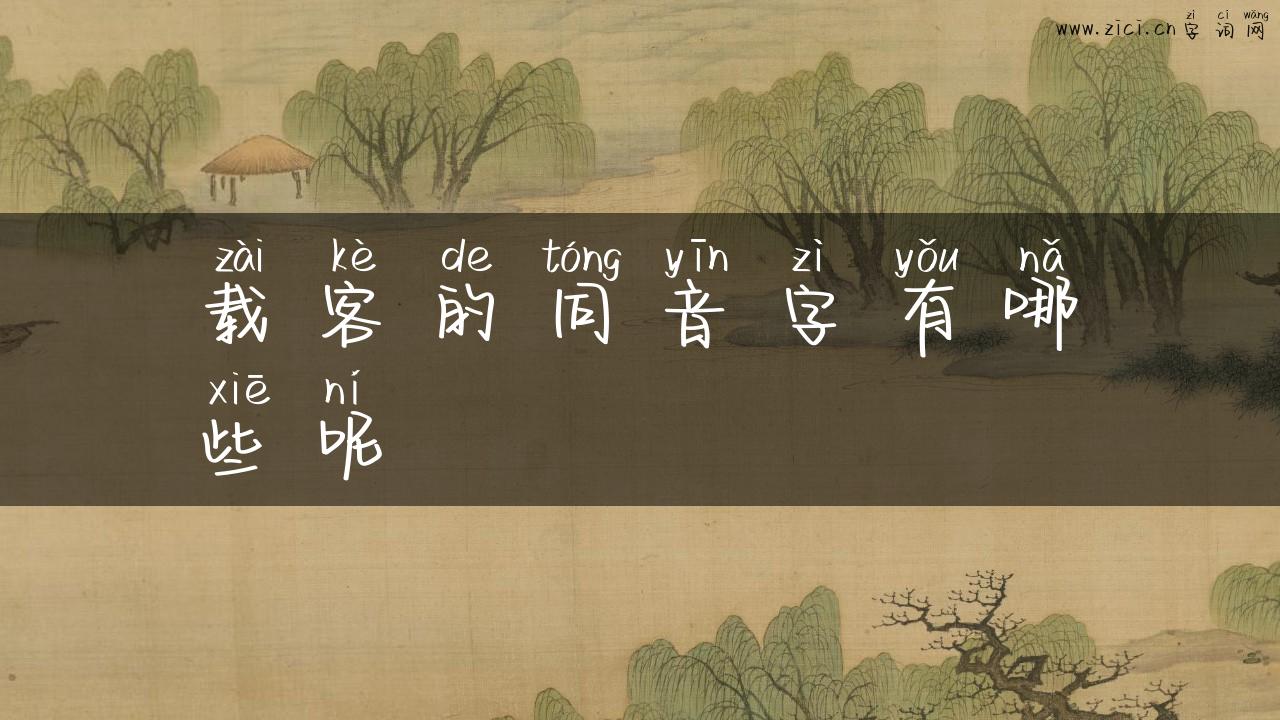 zì cí wǎng
www.zici.cn 字词网
zài kè de tóng yīn zì yǒu nǎ
载客的同音字有哪
xiē ní
些呢